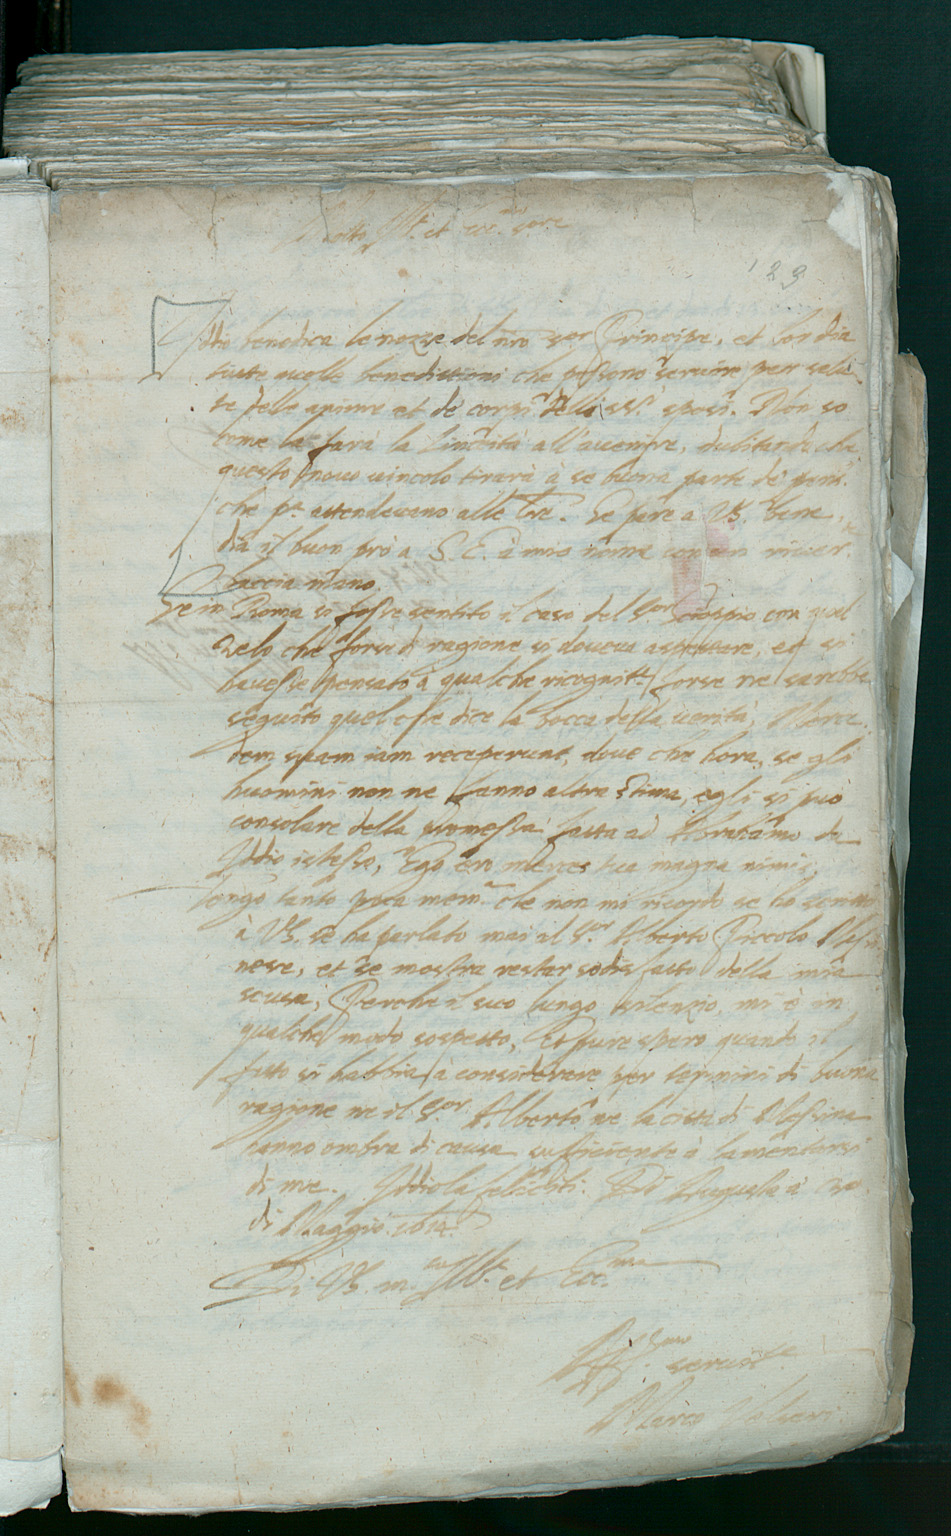 Molto Ill.re et ecc.mo sor.e
123
Iddio benedica le nozze del nro sor Principe, et lor dia
tutte quelle benedittioni che possono servire per salu-
te delle anime et de corpi della ss.i sposi. Non so
come la farà la Lincëità all'avenire, dubitando che
questo nuovo vincolo tirarà à se buona parte de pens.ri
che p.a attendevano alle lre. Se pare a VS. bene,
dia il buon prò a S. E. à mio nome con un river.
baccia mano.
Se in Roma si fosse sentito il caso del S.or Scioppio con quel
zelo che forse di ragione si doveva aspettare, et si
havesse pensato à qualche ricognit.e forse ne sarebbe
seguito quel che dice la bocca della verità, Merce-
dem suam iam receperunt, dove che hora, se gli
huomini non ne fanno altra stima, egli si può
consolare della promessa fatta ad Abrahamo da
Iddio istesso, Ego ero merces tua magna nimis.
Tengo tanto poca mem.a che non mi ricordo se ho scritto
à VS. se ha parlato mai il S.or Alberto Piccolo Messi-
nese, et se mostra restar sodisfatto della mia
scusa, Perche il suo lungo silenzio mi è in
qualche modo sospetto, Et pure spero quando il
fatto si habbia à considerare per termini di buona
ragione ne il S.or Alberto ne la città di Messina
hanno ombra di causa sufficiente à lamentarsi
di me. Iddio la feliciti. Di Augusta à
di Maggio 1614.
Di VS. m.to Ill.e et Ecc.ma
Aff.mo servit.re
Marco Velseri